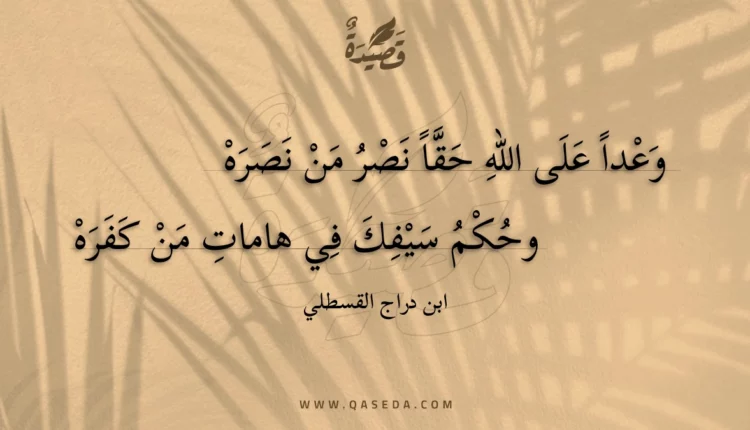 قَصِيْدَةٌ
وَعْداً عَلَى اللهِ حَقَّاً نَصْرُ مَنْ نَصَرَهْ
وحُكْمُ سَيْفِكَ فِي هاماتِ مَنْ كَفَرَهْ
ابن دراج القسطلي
WWW.QASEDA.COM